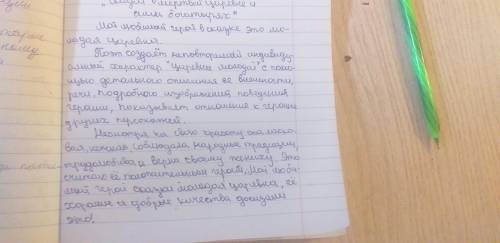 „Сказка о мертвой царевне и
семи богатырях"
Мой любимый герой в сказке это мо-
лодая царевна.
Поэт создаёт неповторимый индивиду-
альный характер "Царевны молодой" с помо-
щью детального описания её внешности,
речи. Подробного изображения поведения
героини, показывает отношение к героине
других персонажей.
Несмотря на свою красоту она ласко-
вая, нежная, соблюдала народные традиции,
трудолюбива и верна своему жениху. Это
считаю её положительным героем. Мой люби-
мый герой сказки молодая царевна, её
хорошие и добрые качества доказали
это!